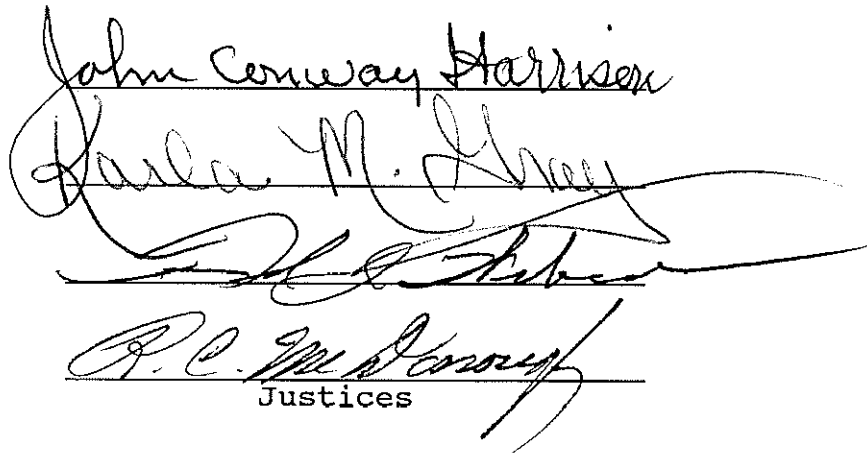 John Conway Harrison
Karla M. Gray
R. C. McDonough
Justices